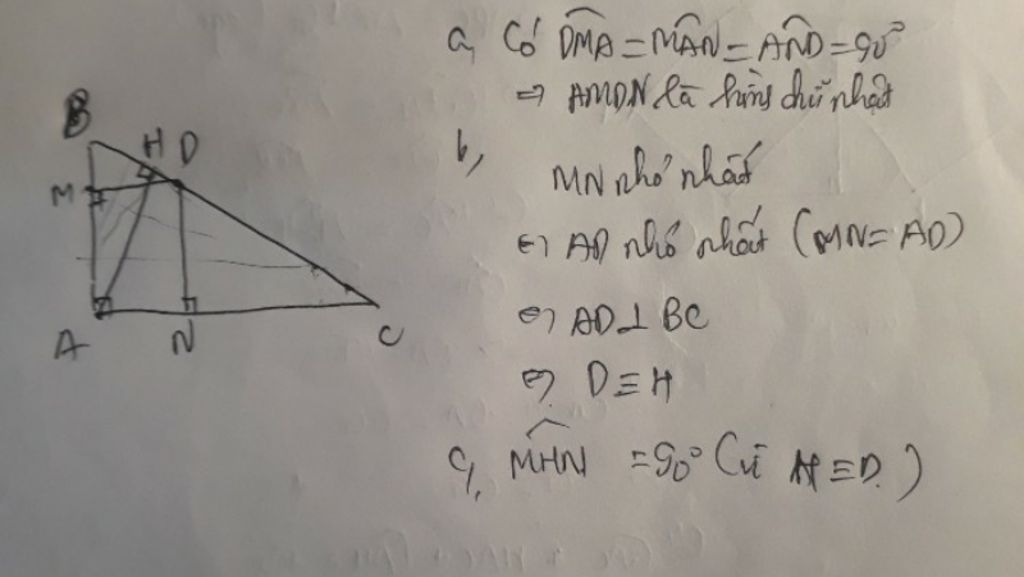 a, Có DMA = MAN = AND = 90°
=> AMDN là hình chữ nhật
b,
MN nhỏ nhất
<=> AD nhỏ nhất (MN = AD)
<=> AD ⊥ BC
<=> D ≡ H
c, MHN = 90° (vì H ≡ D.)
B
H D
M
A N C